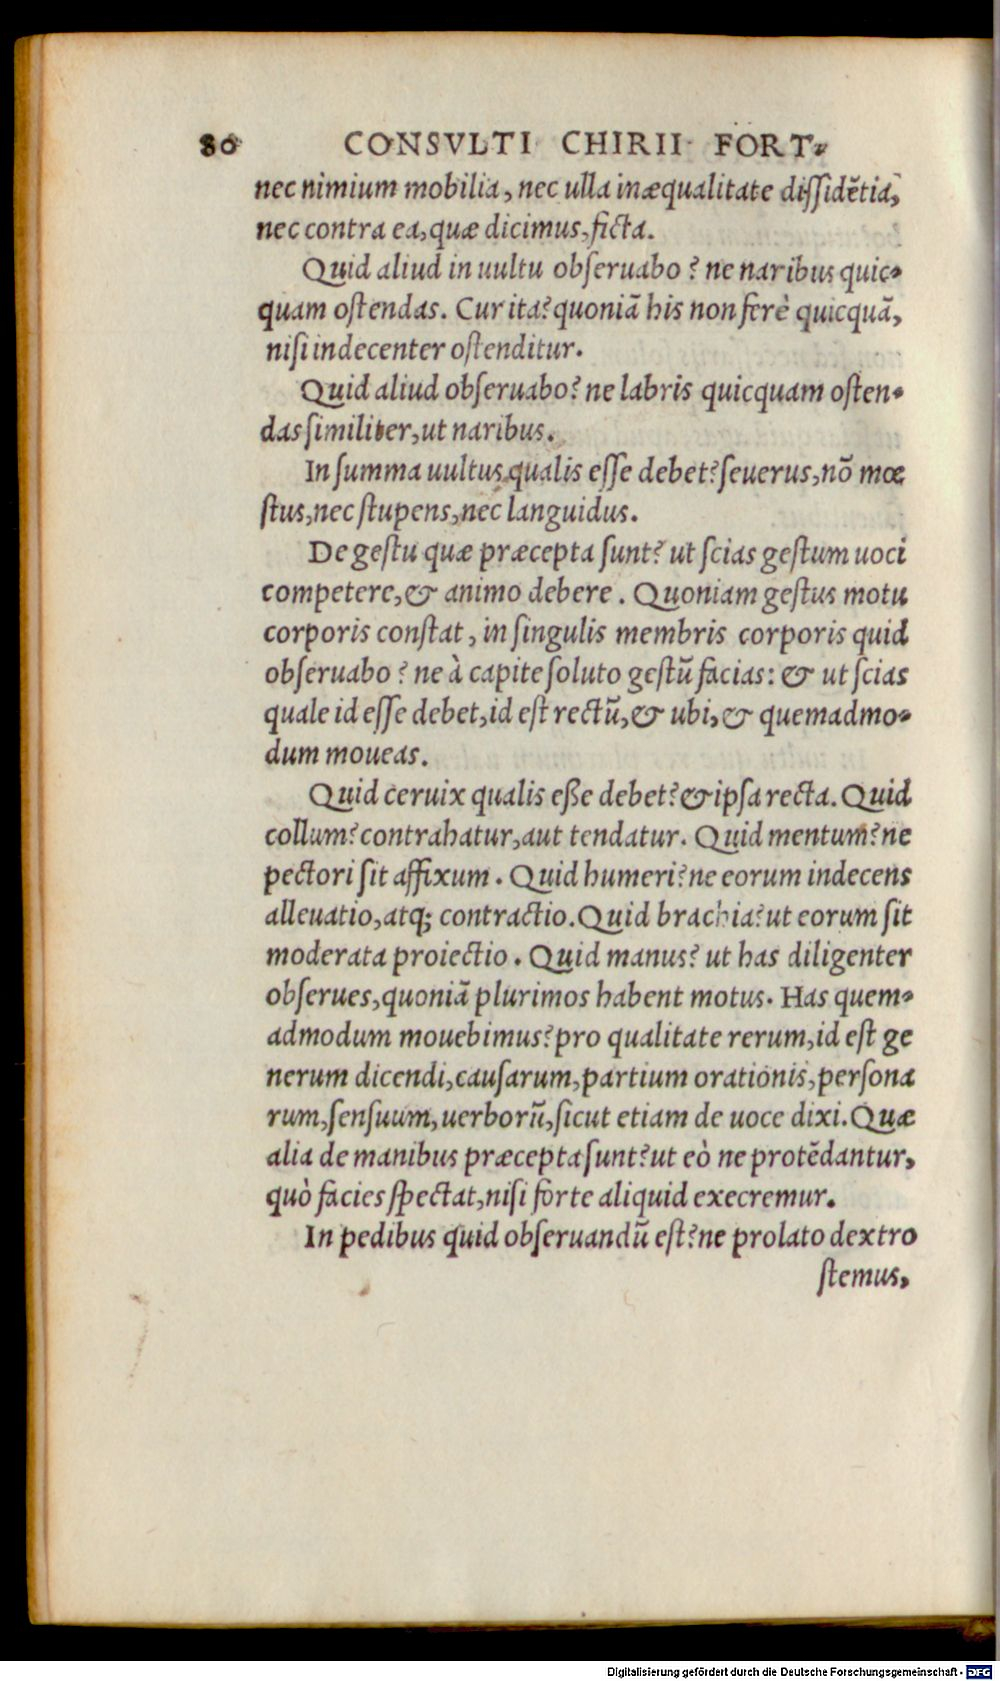 80 CONSVLTI CHIRII FORT-
nec nimium mobilia, nec ulla inæqualitate dissidẽtia,
nec contra ea, quæ dicimus, ficta.
Quid aliud in uultu obseruabo? ne naribus quic-
quam ostendas. Cur ita? quoniã his non ferè quicquã,
nisi indecenter ostenditur.
Quid aliud obseruabo? ne labris quicquam osten-
das similiter, ut naribus.
In summa uultus qualis esse debet? seuerus, nõ mœ
stus, nec stupens, nec languidus.
De gestu quæ præcepta sunt? ut scias gestum uoci
competere, & animo debere. Quoniam gestus motu
corporis constat, in singulis membris corporis quid
obseruabo? ne à capite soluto gestũ facias: & ut scias
quale id esse debet, id est rectũ, & ubi, & quemadmo-
dum moueas.
Quid ceruix qualis eße debet? & ipsa recta. Quid
collum? contrahatur, aut tendatur. Quid mentum? ne
pectori sit affixum. Quid humeri? ne eorum indecens
alleuatio, atq; contractio. Quid brachia? ut eorum sit
moderata proiectio. Quid manus? ut has diligenter
obserues, quoniã plurimos habent motus. Has quem-
admodum mouebimus? pro qualitate rerum, id est ge
nerum dicendi, causarum, partium orationis, persona
rum, sensuum, uerborũ, sicut etiam de uoce dixi. Quæ
alia de manibus præcepta sunt? ut eò ne protẽdantur,
quò facies spectat, nisi forte aliquid execremur.
In pedibus quid obseruandũ est? ne prolato dextro
stemus,
Digitalisierung gefördert durch die Deutsche Forschungsgemeinschaft - DFG